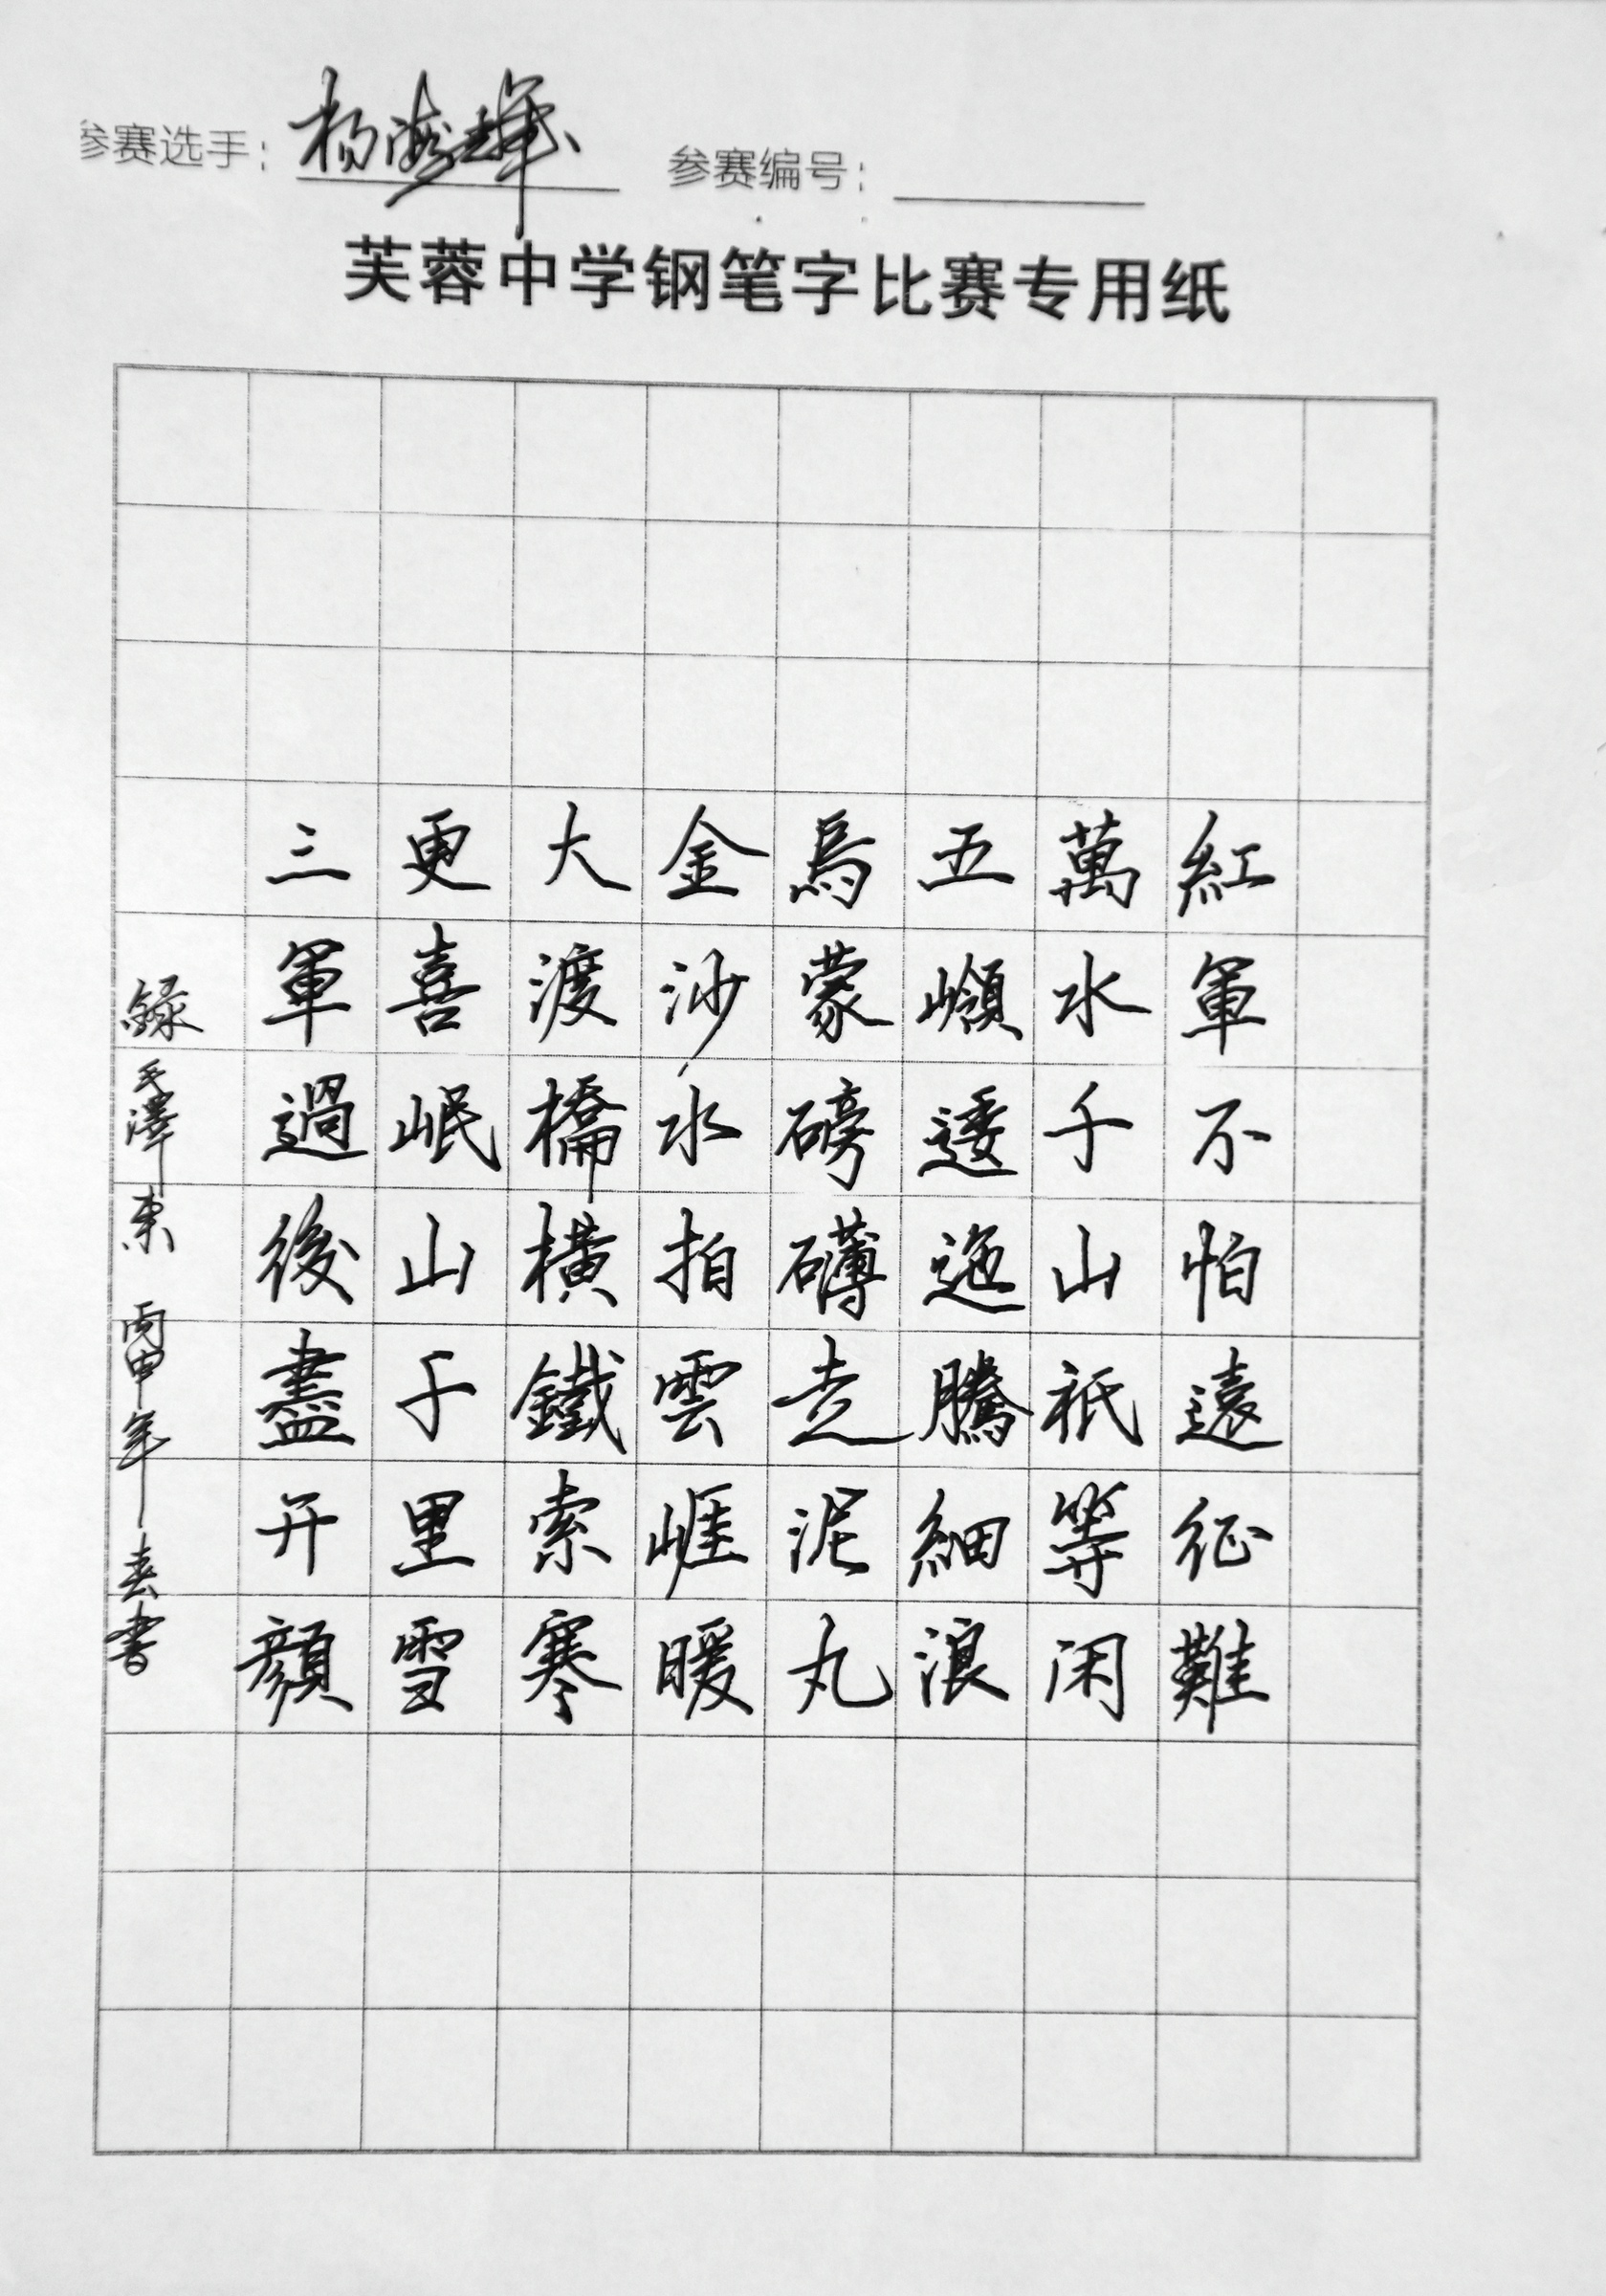 参赛选手：杨海辉 参赛编号：
芙蓉中学钢笔字比赛专用纸
紅軍不怕遠征難
萬水千山祇等闲
五嶺逶迤騰細浪
烏蒙磅礴走泥丸
金沙水拍雲崖暖
大渡橋橫鐵索寒
更喜岷山千里雪
三軍過後盡开顏
錄毛澤東 丙申年春書